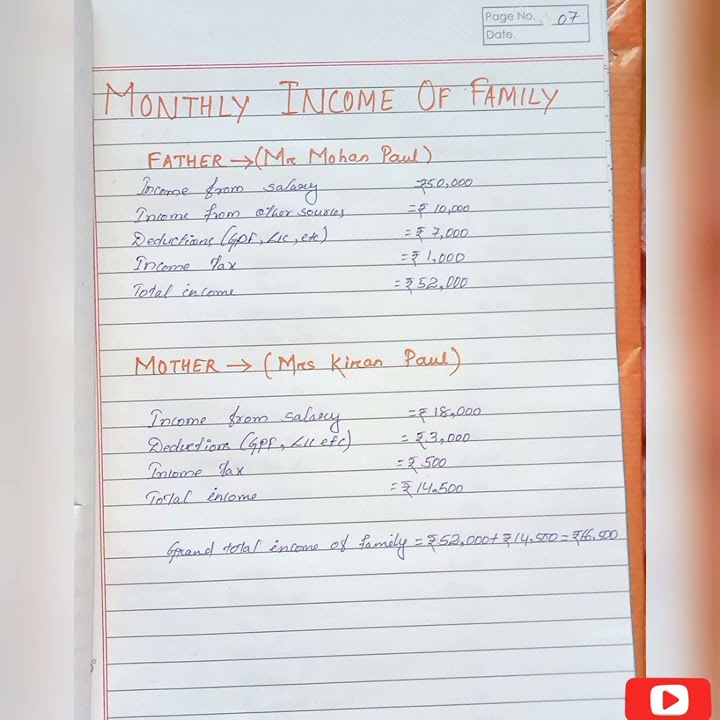 Page No. 07
Date.
MONTHLY INCOME OF FAMILY
FATHER → (Mr Mohan Paul)
Income from salary ₹50,000
Income from other sources =₹ 10,000
Deductions (GPF, LIC, etc) =₹ 7,000
Income Tax =₹ 1,000
Total income =₹ 52,000
MOTHER → (Mrs Kiran Paul)
Income from salary =₹ 18,000
Deductions (GPF, LIC etc) =₹ 3,000
Income Tax =₹ 500
Total income =₹ 14,500
Grand total income of family = ₹52,000+ ₹14,500 = ₹66,500